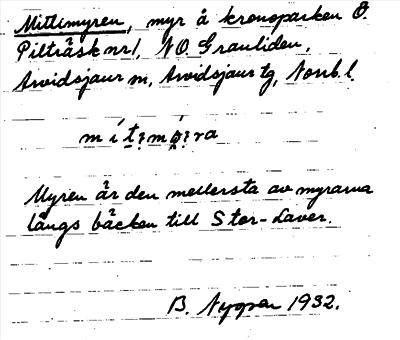 Mittimyren, myr å kronoparken Ö.
Pilträsk nr 1, NO. Granliden,
Arvidsjaur sn, Arvidsjaurs tg, Norrb. l.
Myren är den mellersta av myrarna
längs bäcken till Stor-Laver.
B. Nygren 1932.